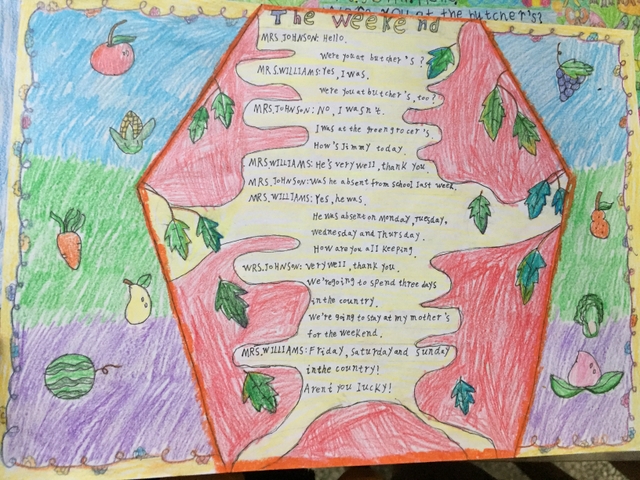 Hello.
YOU at the butcher's?
The weekend
MRS JOHNSON: Hello.
Were you at butcher's?
MRS.WILLIAMS: Yes, I was.
Were you at butcher's, too?
MRS.JOHNSON: No, I wasn't.
I was at the greengrocer's
How's Jimmy today.
MRS WILLIAMS: He's very well, thank you.
MRS.JOHNSON: Was he absent from school last week.
MRS.WILLIAMS: Yes, he was.
He was absent on Monday, Tuesday,
Wednesday and Thursday.
How are you all keeping.
WRS.JOHNSON: Very well, thank you.
We'regoing to spend three days
in the country.
We're going to stay at my mother's
for the weekend.
MRS.WILLIAMS: Friday, Saturday and Sunday
in the country!
Aren't you lucky!